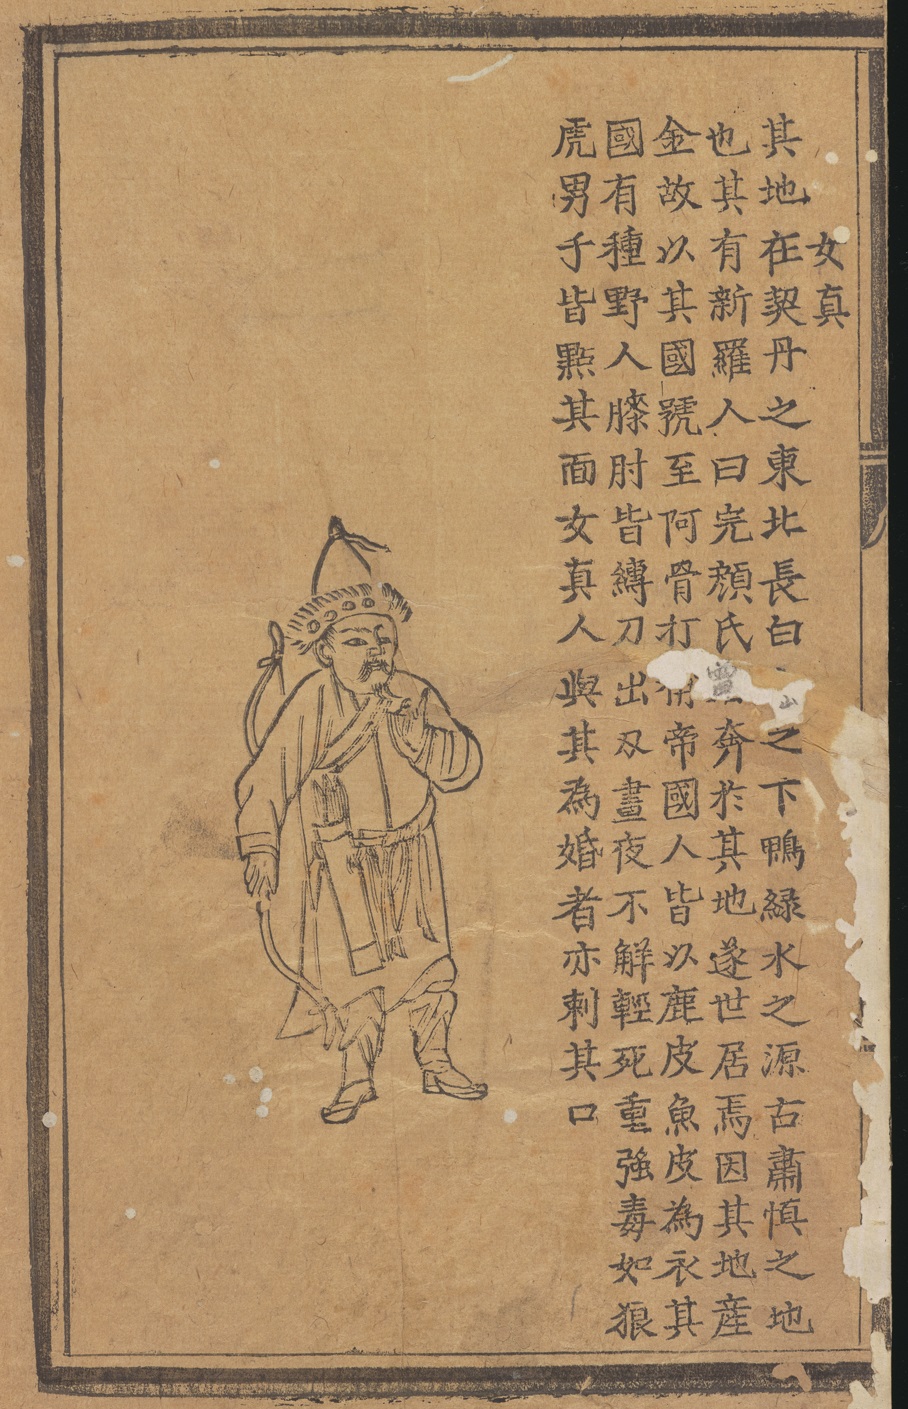 女真
其地在契丹之東北長白山之下鴨緑水之源古肅慎之地
也其有新羅人曰完顔氏奔於其地遂世居焉因其地産
金故以其國號至阿骨打帝國人皆以鹿皮魚皮為衣其
國有種野人膝肘皆縛刀出刄晝夜不解輕死重強毒如狼
虎男子皆㸃其面女真人與其為婚者亦刺其口